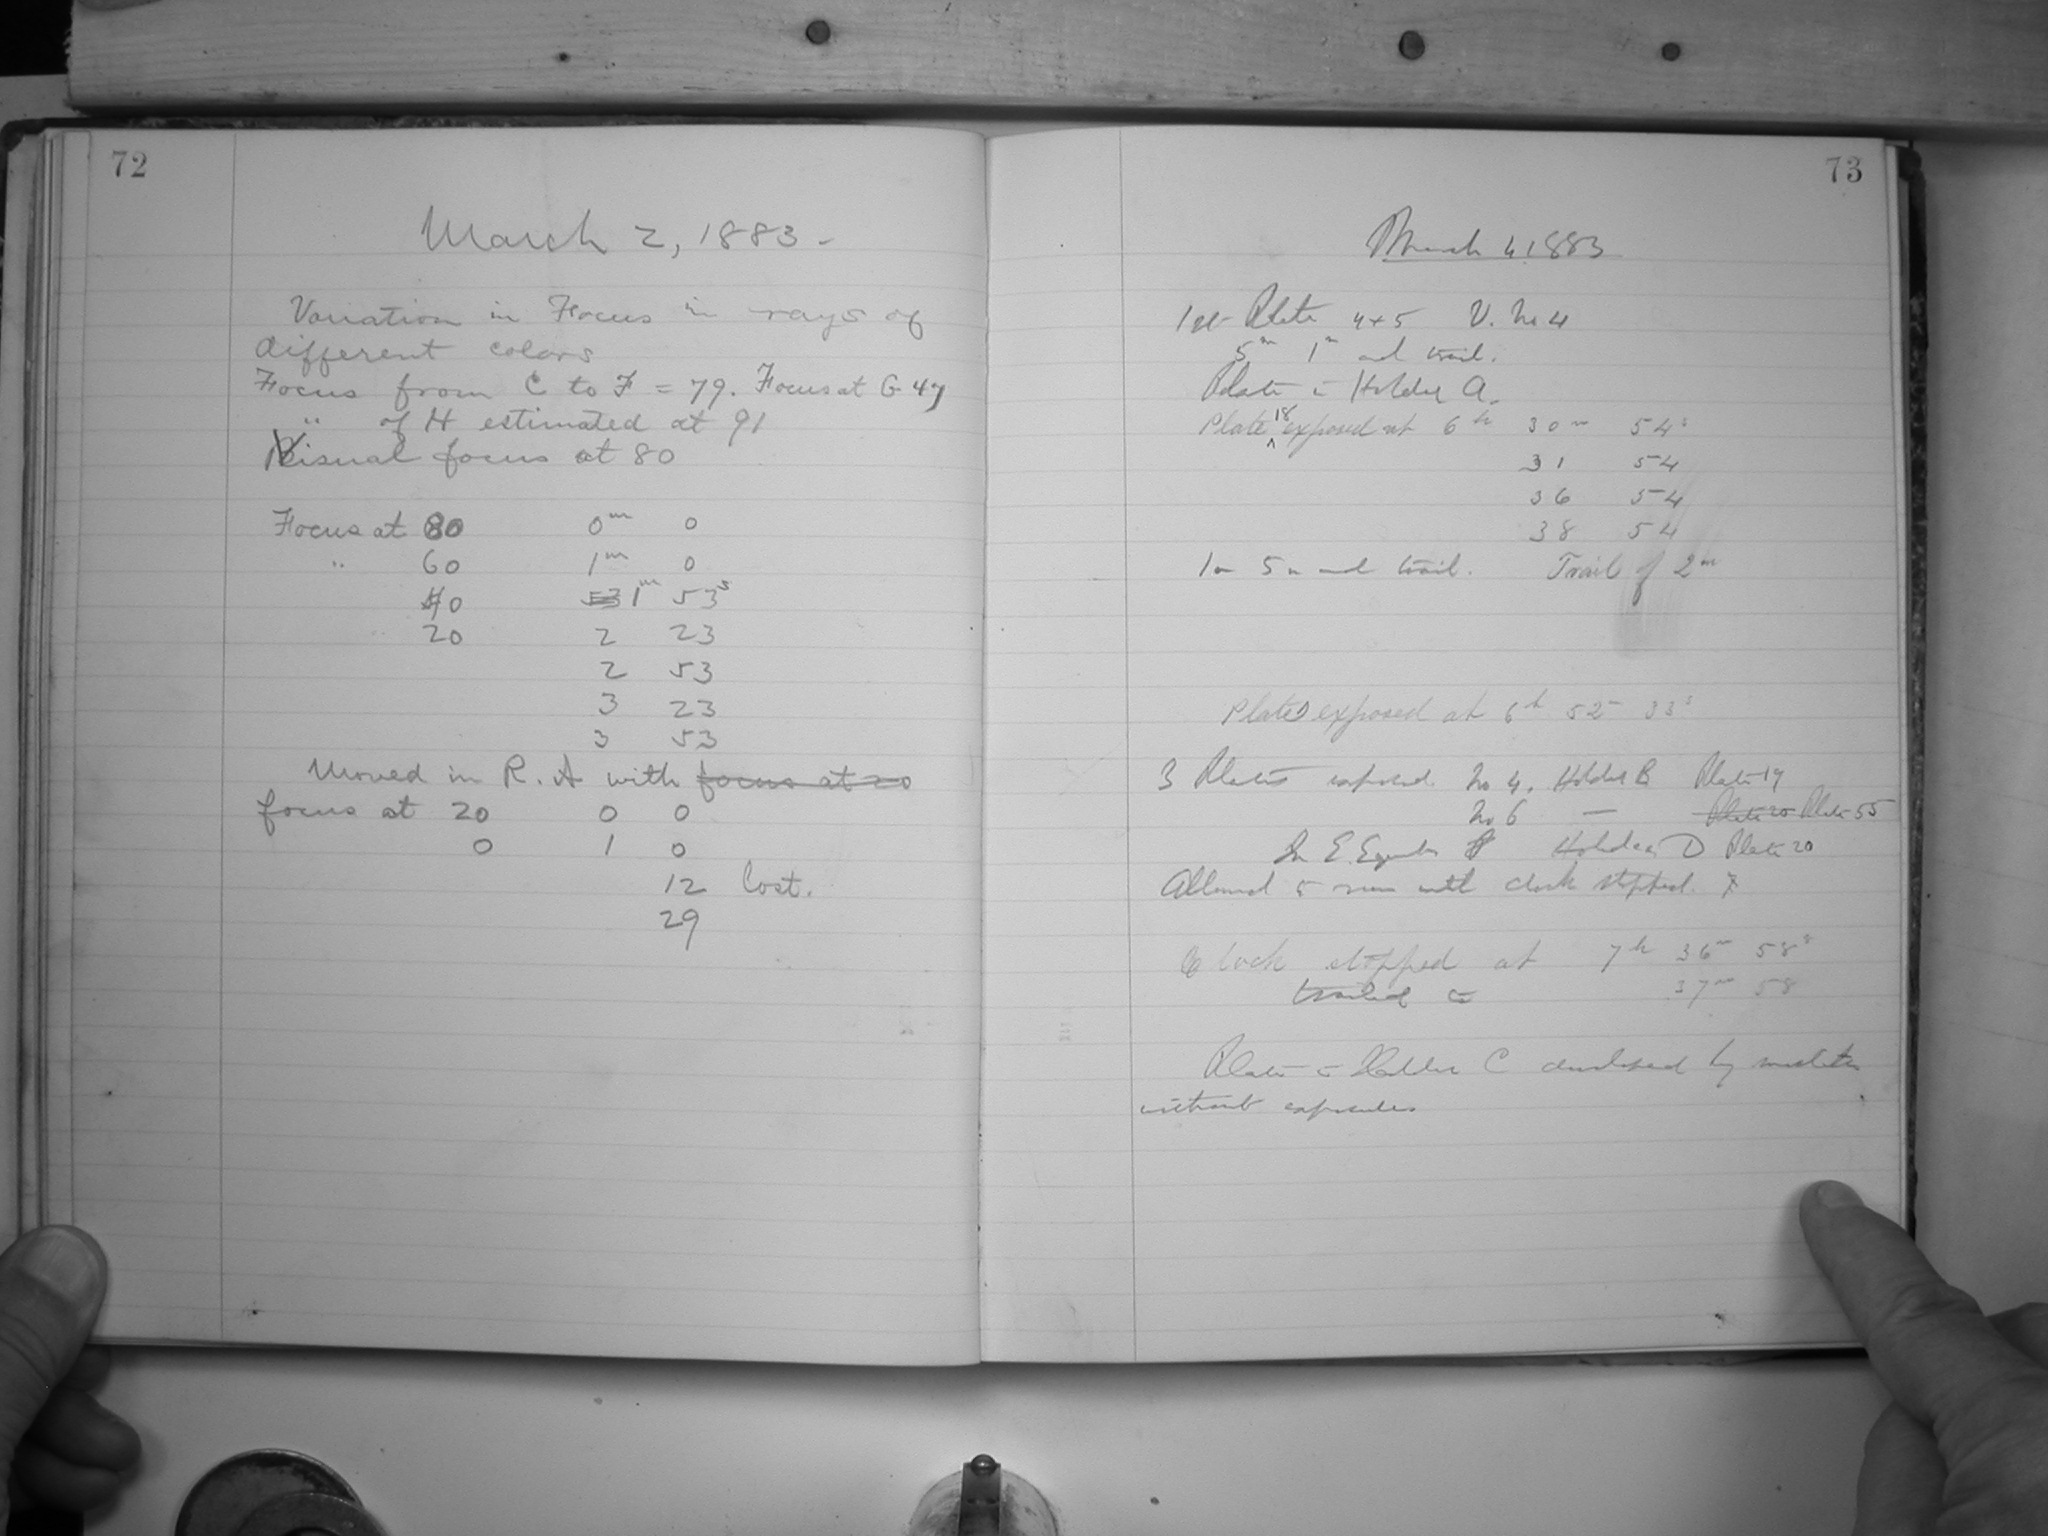 72
March 2, 1883.
Variation in Focus in rays of
different colors
Focus from C to F = 79. Focus at G 47
" of H estimated at 91
Visual focus at 80
Focus at 80 0m 0
" 60 1m 0
40 53 1m 53s
" 20 2 23
2 53
3 23
3 53
Moved in R. A with focus at 20
focus at 20 0 0
0 1 0
12 lost.
29
73
March 4 1883
1st Plate 4x5 V. No 4
5m 1m and trail.
Plate in Holder A.
Plate 18 exposed at 6h 30m 54s
31 54
36 54
38 54
1m 5m and trail. Trail of 2m
Plates exposed at 6h 52 33s
3 Plates exposed No 4. Holder B Plate 19
No 6 — Plate 20 Plate 55
In E. Holder D Plate 20
Allowed to run with clock stopped.
Clock stopped at 7h 36m 58s
trailed to 37m 58
Plate in Holder C developed by mistake
without exposure